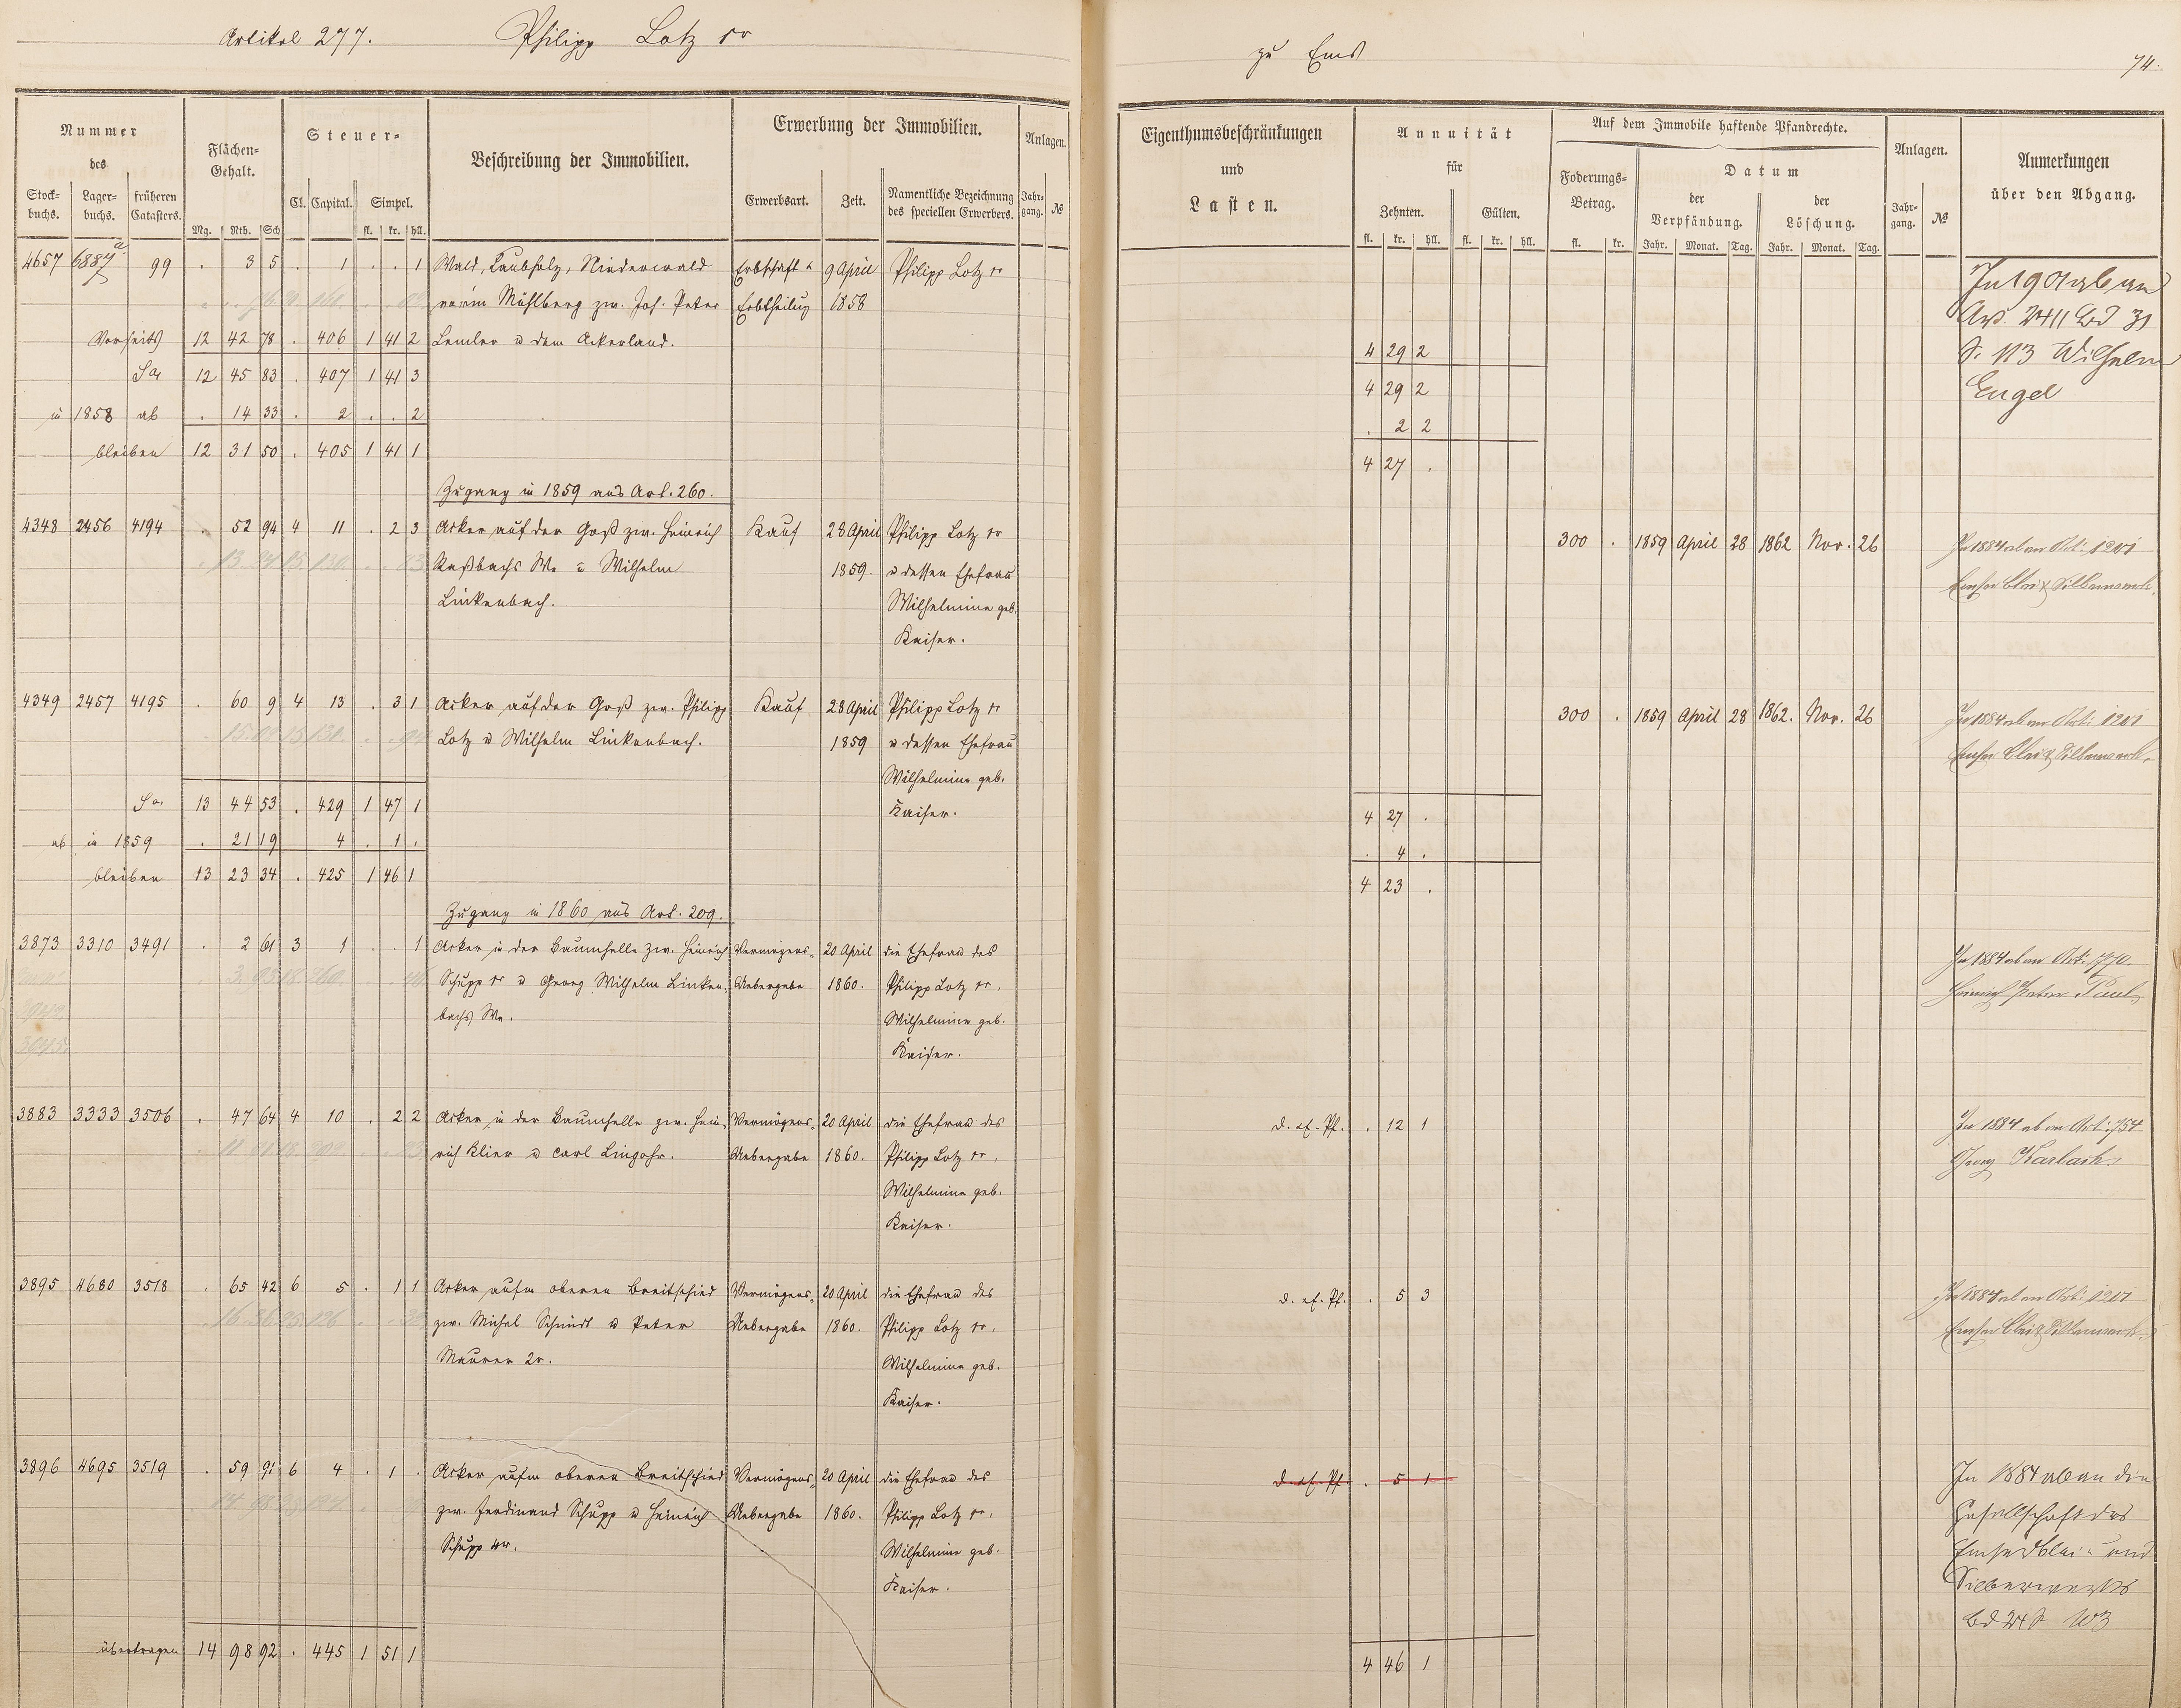 Artikel 277. Philipp Lotz 1r
zu Ems 74.
Nummer
des
Stock-
buchs.
Lager-
buchs.
früheren
Catasters.
Flächen-
Gehalt.
Mg. Rth. Sch
Steuer-
Cl. Capital. Simpel.
fl. kr. hll.
Beschreibung der Immobilien.
Erwerbung der Immobilien.
Erwerbsart. Zeit.
Namentliche Bezeichnung
des speciellen Erwerbers.
Anlagen.
Jahr-
gang. №
Eigenthumsbeschränkungen
und
Lasten.
Annuität
für
Zehnten. Gülten.
fl. kr. hll. fl. kr. hll.
Auf dem Immobile haftende Pfandrechte.
Foderungs-
Betrag.
fl. kr.
Datum
der
Verpfändung.
der
Löschung.
Jahr. Monat. Tag. Jahr. Monat. Tag.
Anlagen.
Jahr-
gang. №
Anmerkungen
über den Abgang.
4657 6887 a 99 . 3 5 . 1 . . 1 Wald, Laubholz, Niederwald Erbschaft u 9 April Philipp Lotz 1r
vorn im Mühlberg zw. Joh. Peter Erbtheilung 1858
Vorseits 12 42 78 . 406 1 41 2 Lemler u dem Ackerland. 4 29 2
Sa 12 45 83 . 407 1 41 3 4 29 2
in 1858 ab . 14 33 . 2 . . 2 . 2 2
bleiben 12 31 50 . 405 1 41 1 4 27 .
In 1901 ab an
Art. 2411 Bd 31
S. 113 Wilhelm
Engel
Zugang in 1859 aus Art. 260.
4348 2456 4194 . 52 94 4 11 . 2 3 Acker auf der Goß zw. Heinrich Kauf 28 April Philipp Lotz 1r 300 . 1859 April 28 1862 Nov. 26 In 1884 ab an Art. 1201
Kaßbachs We u Wilhelm 1859. u dessen Ehefrau Emser Blei & Silberwerk.
Linkenbach. Wilhelmine geb.
Kaiser.
4349 2457 4195 . 60 9 4 13 . 3 1 Acker auf der Goß zw. Philipp Kauf 28 April Philipp Lotz 1r 300 . 1859 April 28 1862. Nov. 26 In 1884 ab an Art. 1201
Lotz u Wilhelm Linkenbach. 1859 u dessen Ehefrau Emser Blei & Silberwerk.
Wilhelmine geb.
Kaiser.
Sa. 13 44 53 . 429 1 47 1 4 27 .
ab in 1859 . 21 19 4 . 1 . . 4 .
bleiben 13 23 34 . 425 1 46 1 4 23 .
Zugang in 1860 aus Art. 209.
3873 3310 3491 . 2 61 3 1 . . 1 Acker in der Baumhelle zw. Heinrich Vermögens- 20 April die Ehefrau des In 1884 ab an Art. 770.
Schupp 1r u Georg Wilhelm Linken- Uebergabe 1860. Philipp Lotz 1r, Heinrich Peter Paul
bachs We. Wilhelmine geb.
Kaiser.
3883 3333 3506 . 47 64 4 10 . 2 2 Acker in der Baumhelle zw. Hein- Vermögens- 20 April die Ehefrau des d. ef. Pf. . 12 1 In 1884 ab an Art. 754
rich Klier u Carl Lingohr. Uebergabe 1860. Philipp Lotz 1r, Georg Karbach.
Wilhelmine geb.
Kaiser.
3895 4680 3518 . 65 42 6 5 . 1 1 Acker aufm oberen Breitschied Vermögens- 20 April die Ehefrau des d. ef. Pf. . 5 3 In 1884 ab an Art. 1201
zw. Michel Schmidt u Peter Uebergabe 1860. Philipp Lotz 1r, Emser Blei & Silberwerk.
Maurer 2r. Wilhelmine geb.
Kaiser.
3896 4695 3519 . 59 91 6 4 . 1 . Acker aufm oberen Breitschied Vermögens- 20 April die Ehefrau des d. ef. Pf. . 5 1 In 1884 ab an die
zw. Ferdinand Schupp u Heinrich Uebergabe 1860. Philipp Lotz 1r, Gesellschaft des
Schupp 4r. Wilhelmine geb. Emser Blei- und
Kaiser. Silberwerks
Bd 24 S 103
übertragen 14 98 92 . 445 1 51 1 4 46 1